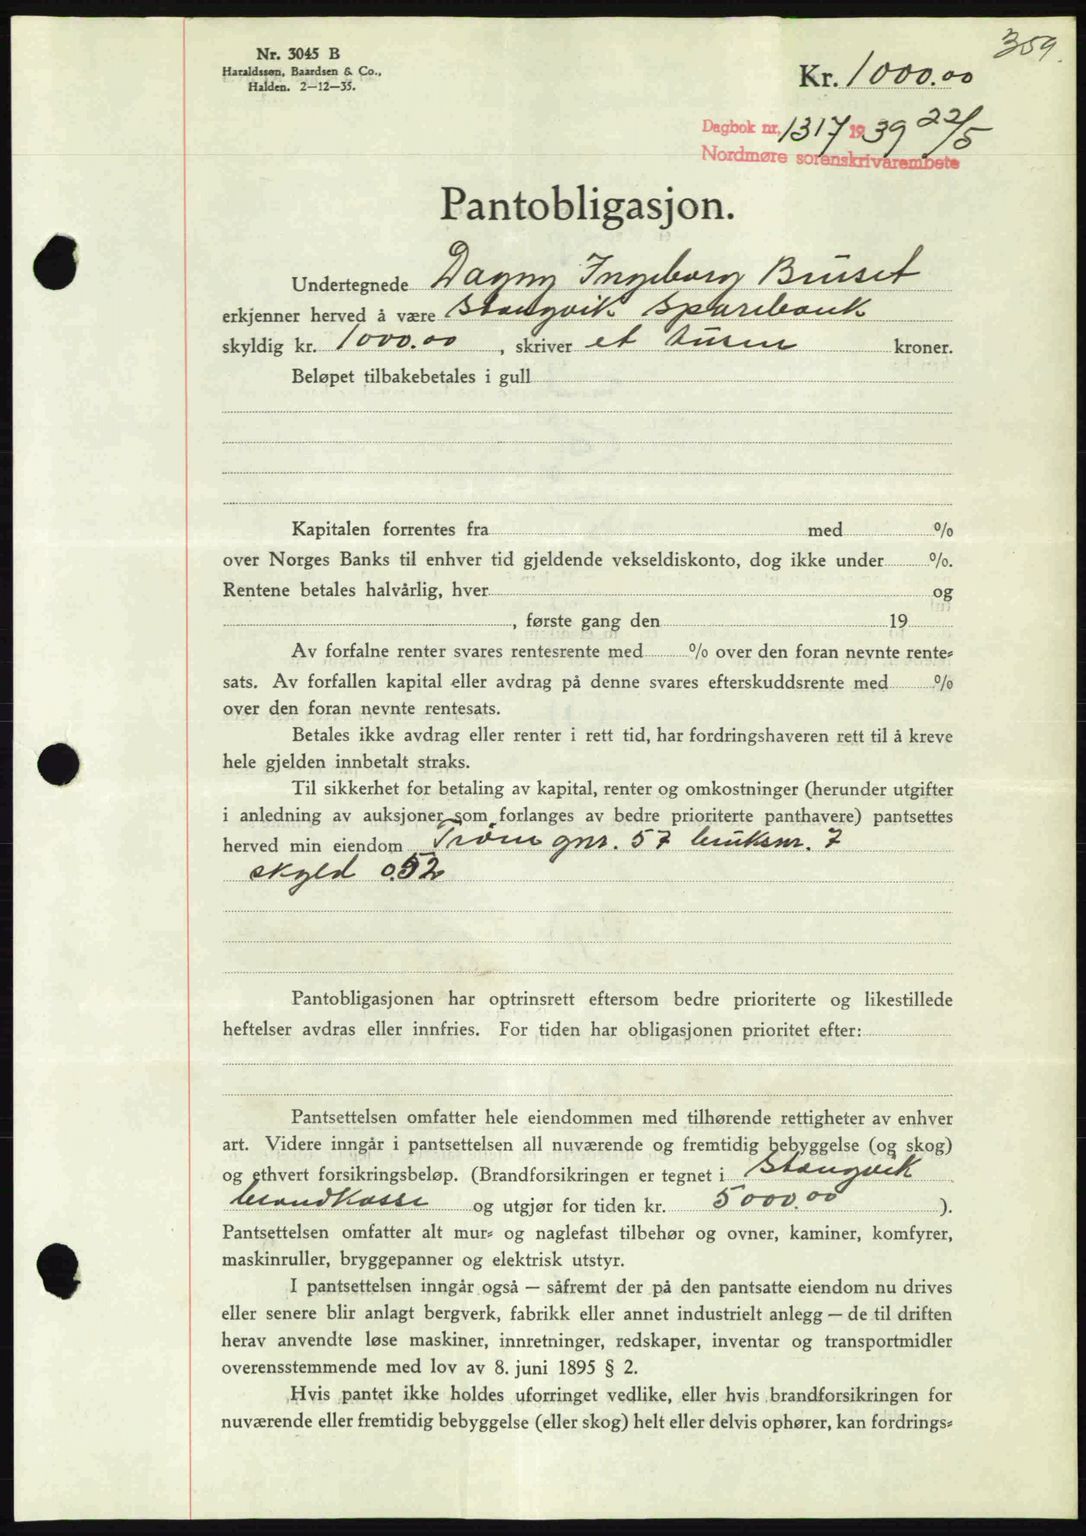 359.
Nr. 3045 B
Haraldssøn, Baardsen & Co.,
Halden. 2—12—35.
Kr. 1000.00
Dagbok nr. 1317 1939 22/5
Nordmøre sorenskrivarembete
Pantobligasjon.
Undertegnede Dagny Ingeborg Bruset
erkjenner herved å være Stangvik Sparebank
skyldig kr. 1000.00 , skriver et tusen kroner.
Beløpet tilbakebetales i gull
Kapitalen forrentes fra med %
over Norges Banks til enhver tid gjeldende vekseldiskonto, dog ikke under %.
Rentene betales halvårlig, hver og
, første gang den 19
Av forfalne renter svares rentesrente med % over den foran nevnte rente-
sats. Av forfallen kapital eller avdrag på denne svares efterskuddsrente med %
over den foran nevnte rentesats.
Betales ikke avdrag eller renter i rett tid, har fordringshaveren rett til å kreve
hele gjelden innbetalt straks.
Til sikkerhet for betaling av kapital, renter og omkostninger (herunder utgifter
i anledning av auksjoner som forlanges av bedre prioriterte panthavere) pantsettes
herved min eiendom gnr. 57 bruksnr. 7
skyld 0.52
Pantobligasjonen har optrinsrett eftersom bedre prioriterte og likestillede
heftelser avdras eller innfries. For tiden har obligasjonen prioritet efter:
Pantsettelsen omfatter hele eiendommen med tilhørende rettigheter av enhver
art. Videre inngår i pantsettelsen all nuværende og fremtidig bebyggelse (og skog)
og ethvert forsikringsbeløp. (Brandforsikringen er tegnet i Stangvik
brandkasse og utgjør for tiden kr. 5000.00 ).
Pantsettelsen omfatter alt mur- og naglefast tilbehør og ovner, kaminer, komfyrer,
maskinruller, bryggepanner og elektrisk utstyr.
I pantsettelsen inngår også — såfremt der på den pantsatte eiendom nu drives
eller senere blir anlagt bergverk, fabrikk eller annet industrielt anlegg — de til driften
herav anvendte løse maskiner, innretninger, redskaper, inventar og transportmidler
overensstemmende med lov av 8. juni 1895 § 2.
Hvis pantet ikke holdes uforringet vedlike, eller hvis brandforsikringen for
nuværende eller fremtidig bebyggelse (eller skog) helt eller delvis ophører, kan fordrings-